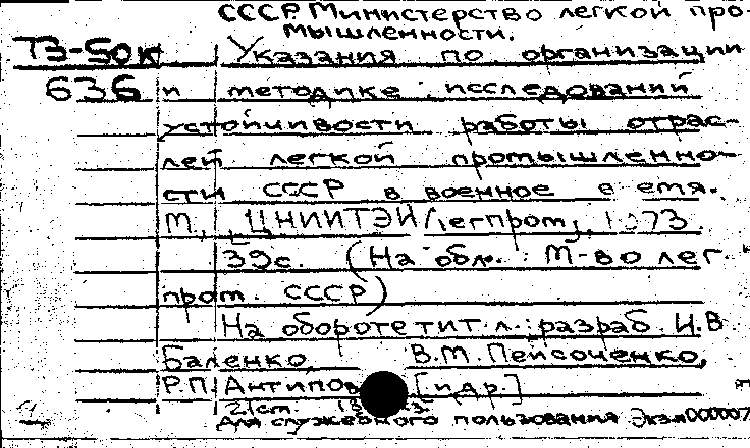 СССР. Министерство легкой про-
мышленности.
ТЗ-50к Указания по организации
636 и методике исследований
устойчивости работы отрас-
лей легкой промышленно-
сти СССР в военное
М., ЦНИИТЭИлегпром,
39с. (На обл.: М-во лег.
пром. СССР)
На обороте тит. л.: разраб. И.В
Баленко, В.М. Пейсоченко,
Р.П. Антипов [и др.]
Для служебного пользования Экз №000007